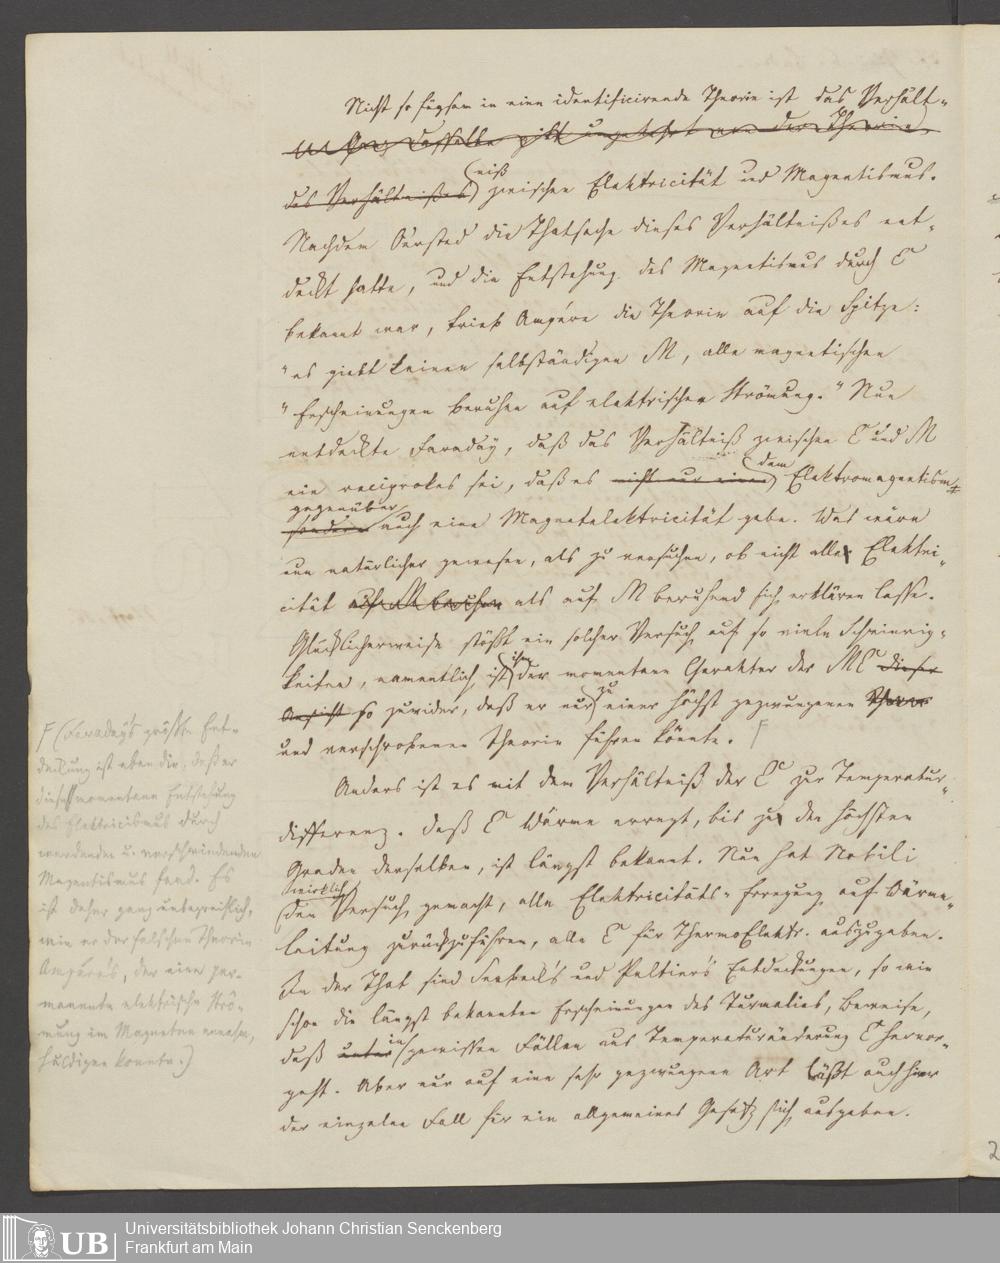 Nicht so fügsam in eine identificirende Theorie ist das Verhält-
Ganz dasselbe gilt umgekehrt von der Theorie
des Verhältnißes niß zwischen Elektricität und Magnetismus.
Nachdem Oersted die Thatsache dieses Verhältnißes ent-
deckt hatte, und die Entstehung des Magnetismus durch E
bekannt war, trieb Ampére die Theorie auf die Spitze:
"es giebt keinen selbständigen M, alle magnetischen
"Erscheinungen beruhen auf elektrischer Strömung." Nun
entdeckte Faraday, daß das Verhältniß zwischen E und M
ein reciprokes sei, daß es nicht nur einen dem Elektromagnetism
gegenüber
sondern auch eine Magnetelektricität gebe. Was wäre
nun natürlicher gewesen, als zu versuchen, ob nicht alle Elektri-
cität auf M beruhen als auf M beruhend sich erklären lasse.
Glücklicherweise stößt ein solcher Versuch auf so viele Schwierig-
keiten, namentlich ist ihm der momentane Charakter der ME dieser
Ansicht so zuwider, daß er nur zu einer höchst gezwungenen Theorie
und verschrobenen Theorie führen könnte. F
Anders ist es mit dem Verhältniß der E zur Temperatur-
differenz. Daß E Wärme erregt, bis zu den höchsten
Graden derselben, ist längst bekannt. Nun hat Nobili
wirklich
den Versuch gemacht, alle Elektricitäts-Erregung auf Wärme-
leitung zurückzuführen, alle E für ThermoElektr. auszugeben.
In der That sind Seebeck's und Peltier's Entdeckungen, so wie
schon die längst bekannten Erscheinungen des Turmalins, Beweise,
daß unter in gewissen Fällen aus Temperaturänderung E hervor-
geht. Aber nur auf eine sehr gezwungene Art läßt auch hier
der einzelne Fall für ein allgemeines Gesetz sich ausgeben.
F (Faraday's größte Ent-
deckung ist eben die, daß er
diese momentane Entstehung
des Elektricismus durch
werdenden u. verschwindenden
Magnetismus fand. Es
ist daher ganz unbegreiflich,
wie er der falschen Theorie
Ampère's, der eine per-
manente elektrische Strö-
mung im Magneten annahm,
huldigen konnte.)
2
UB
Universitätsbibliothek Johann Christian Senckenberg
Frankfurt am Main